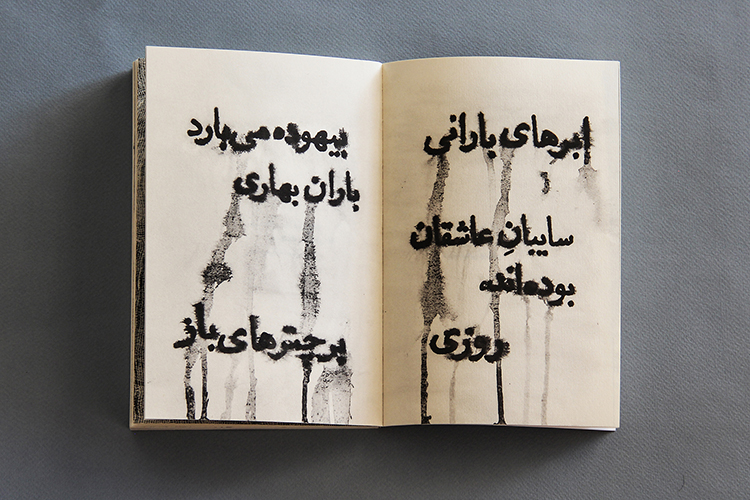 ابرهای بارانی
و
سایبانِ عاشقان
بوده‌اند
روزی
بیهوده می‌بارد
باران بهاری
بر چترهای باز